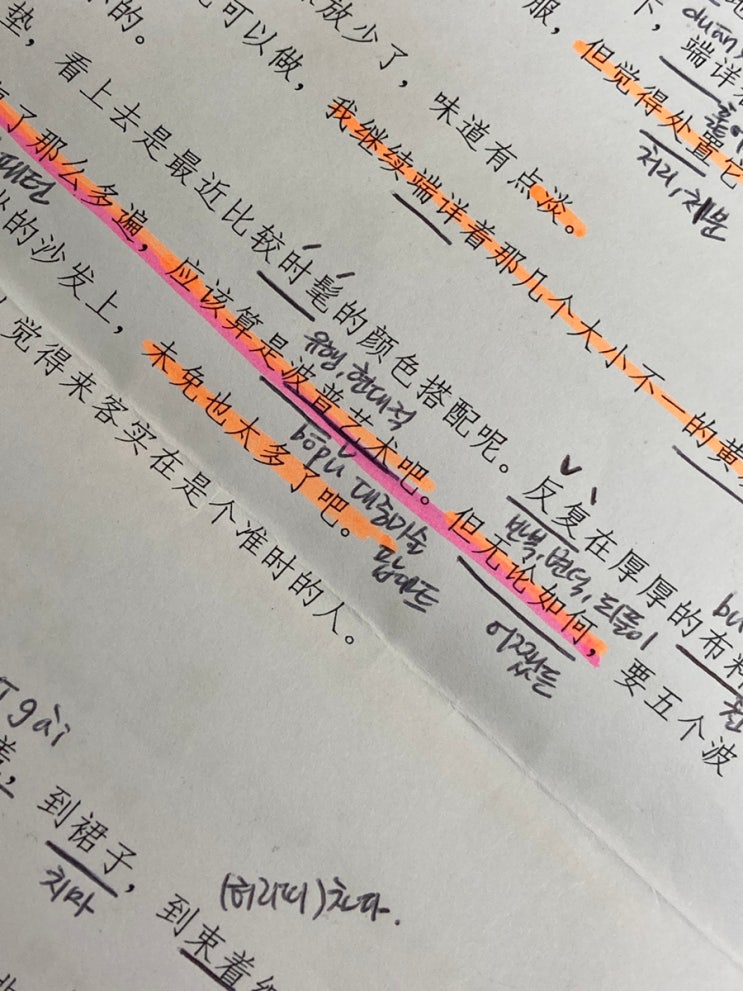 端详
duān
服，但觉得处置它
처리, 처분
放少了，味道有点淡。
可以做，我继续端详着那几个大小不一的黄
的。
垫，看上去是最近比较时髦的颜色搭配呢。反复在厚厚的布料
유행, 현대적
반복, 되풀이
了那么多遍，应该算是波普艺术吧。但无论如何，要五个波
bōpǔ 대중미술
팝아트
어쨌든
的沙发上，未免也太多了吧。
觉得来客实在是个准时的人。
gài
着，到裙子，到束着
치마
(허리띠)차다.